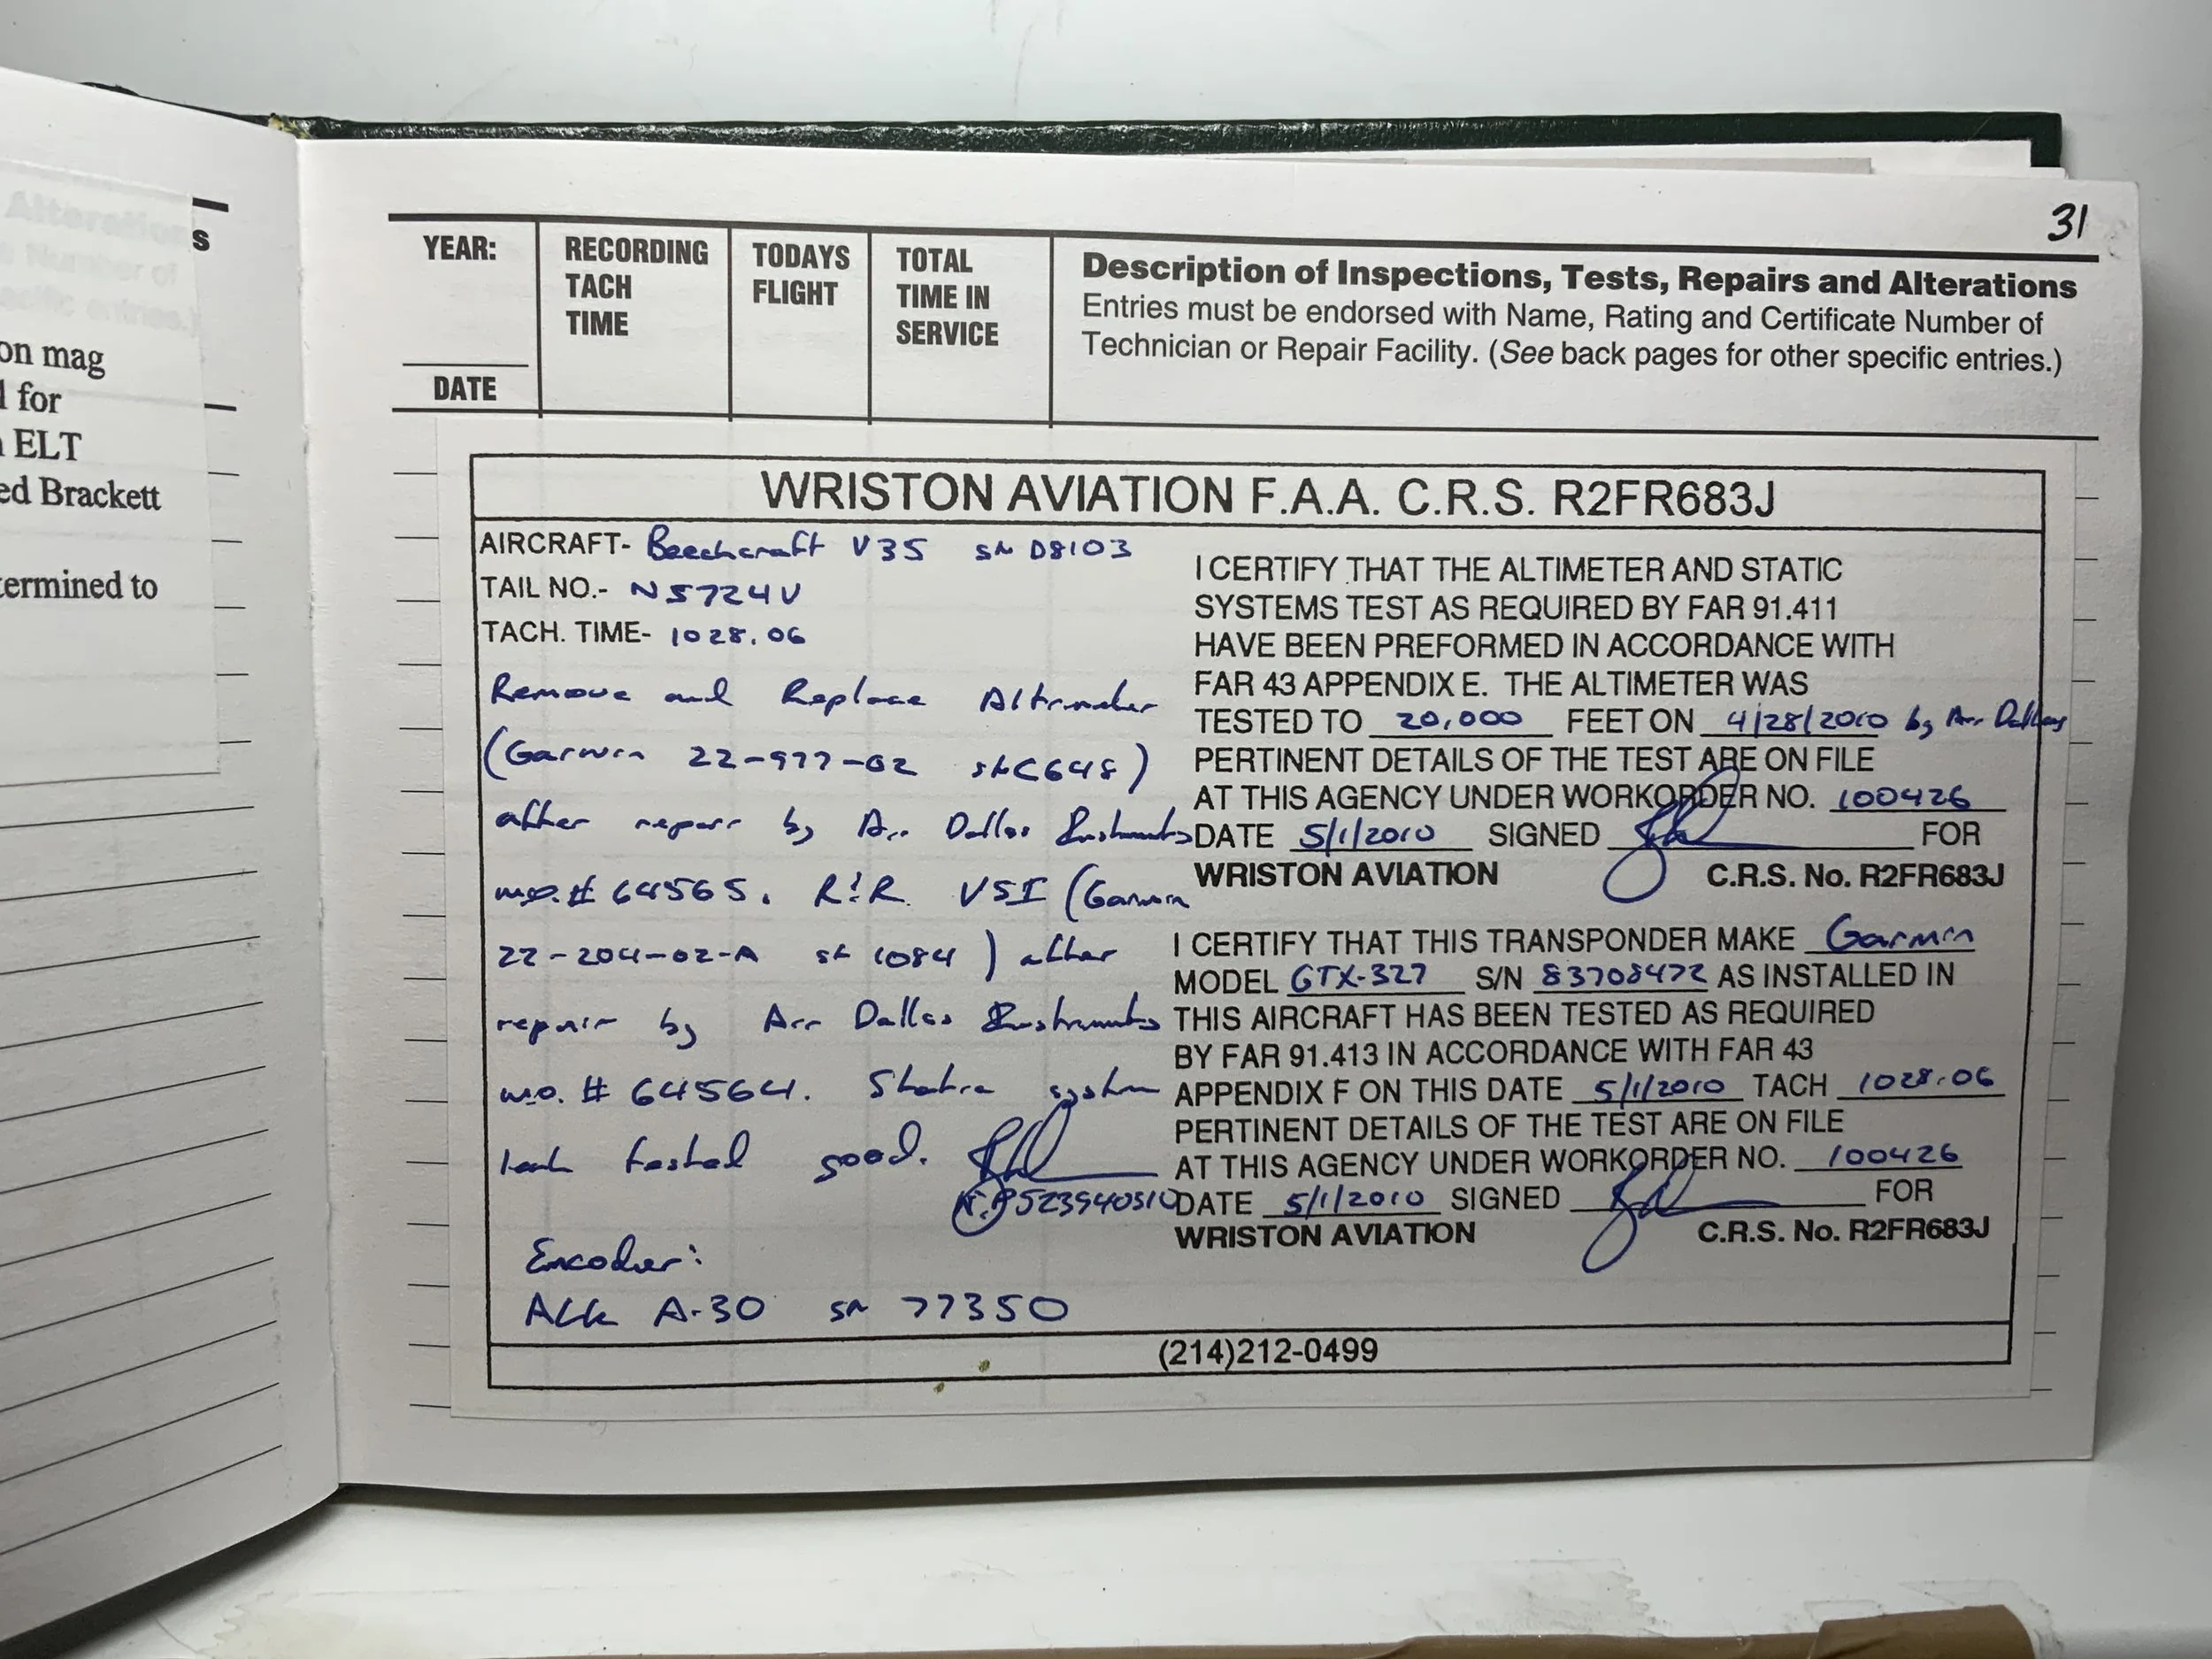 s
on mag
l for
ELT
ed Brackett
termined to
31
YEAR:
DATE
RECORDING
TACH
TIME
TODAYS
FLIGHT
TOTAL
TIME IN
SERVICE
Description of Inspections, Tests, Repairs and Alterations
Entries must be endorsed with Name, Rating and Certificate Number of
Technician or Repair Facility. (See back pages for other specific entries.)
WRISTON AVIATION F.A.A. C.R.S. R2FR683J
AIRCRAFT- Beechcraft V35 SN D8103
TAIL NO.- N5724V
TACH. TIME- 1028.06
Remove and Replace Altimeter
(Garmin 22-977-02 SN C648)
after repair by Air Dallas Instruments
w.o. # 64565. R&R VSI (Garmin
22-204-02-A SN 1084) after
repair by Air Dallas Instruments
w.o. # 64564. Static system
leak tested good.
523940510
Encoder:
ACK A-30 SN 77350
I CERTIFY THAT THE ALTIMETER AND STATIC
SYSTEMS TEST AS REQUIRED BY FAR 91.411
HAVE BEEN PREFORMED IN ACCORDANCE WITH
FAR 43 APPENDIX E. THE ALTIMETER WAS
TESTED TO 20,000 FEET ON 4/28/2010 by Air Dallas
PERTINENT DETAILS OF THE TEST ARE ON FILE
AT THIS AGENCY UNDER WORKORDER NO. 100426
DATE 5/1/2010 SIGNED FOR
WRISTON AVIATION C.R.S. No. R2FR683J
I CERTIFY THAT THIS TRANSPONDER MAKE Garmin
MODEL GTX-327 S/N 83708472 AS INSTALLED IN
THIS AIRCRAFT HAS BEEN TESTED AS REQUIRED
BY FAR 91.413 IN ACCORDANCE WITH FAR 43
APPENDIX F ON THIS DATE 5/1/2010 TACH 1028.06
PERTINENT DETAILS OF THE TEST ARE ON FILE
AT THIS AGENCY UNDER WORKORDER NO. 100426
DATE 5/1/2010 SIGNED FOR
WRISTON AVIATION C.R.S. No. R2FR683J
(214)212-0499